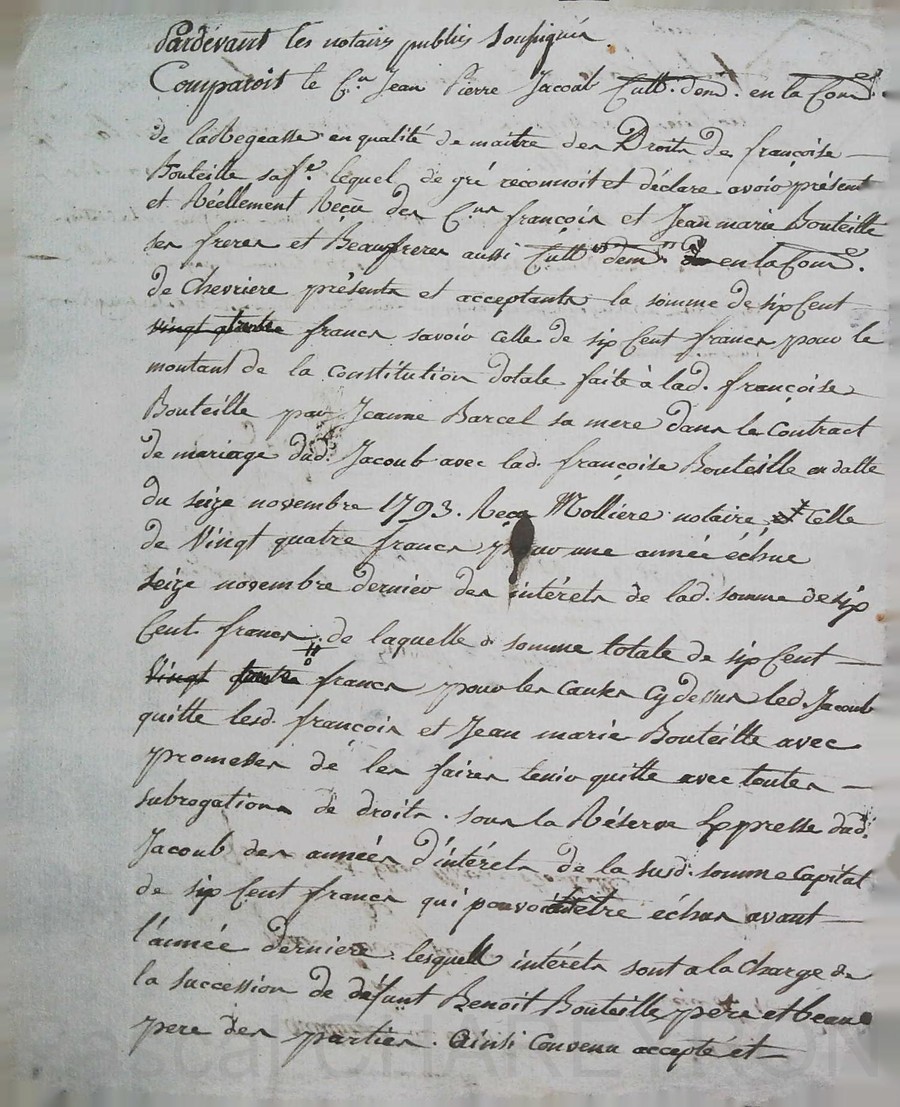 Pardevant les notaires publics Soussignés
Comparoit le C.en Jean Pierre Jacoub Cult. dem. en la Com.e
de Labegeasse en qualité de maitre des Droits de françoise
Bouteille sa f.e lequel de gré reconnoit et déclare avoir présent
et Réellement Reçu des C.ens françois et Jean marie Bouteille
ses freres et Beaufreres aussi Cult.rs dem.ts en la Com.e
de Chevriere présents et acceptants la somme de six Cent
vingt quatre francs savoir celle de six Cent francs pour le
montant de la Constitution dotale faite à lad. françoise
Bouteille par Jeanne Barcel sa mere dans le Contract
de mariage dud. Jacoub avec lad. françoise Bouteille en datte
du seize novembre 1793. Reçu Molliere notaire, et Celle
de Vingt quatre francs pour une année échue
seize novembre dernier des intérets de lad. somme de six
Cent francs, de laquelle somme totale de six Cent
Vingt quatre francs pour les causes cy dessus led. Jacoub
quitte lesd. françois et Jean marie Bouteille avec
promesses de les faires tenir quitte avec toutes
subrogations de droits. sous la Réserve Expresse dud.
Jacoub des années d'intérets de la susd. somme Capital
de six Cent francs qui pouvoient etre échus avant
l'année derniere. lesquels intérets sont a la Charge de
la succession de défunt Benoit Bouteille pere et beau
pere des parties. Ainsi Convenu accepté et
Pascal CHAREYRON